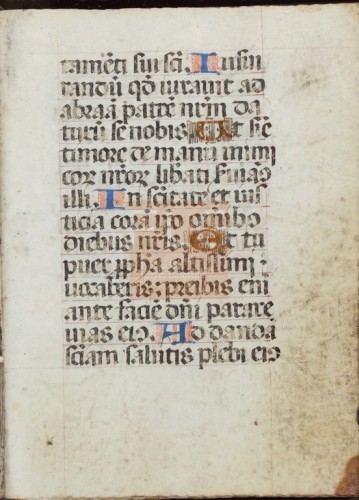 tamēti sui sc̄i. Iusiu
randū qd̄ iurauit ad
abraā patrē nr̄m da
turū se nobis. Ut sīe
timore de manu inimi
cor nr̄or liberati seruiaȝ
illi. In sc̄itate et ius
ticia corā ip̄o omībꝰ
diebus nr̄is. Et tu
puer ꝓpha altissimi:
uocaberis: preibis eni
ante faciē dn̄i parare
uias eiꝰ. Ad dandā
sc̄iam salutis plebi eiꝰ